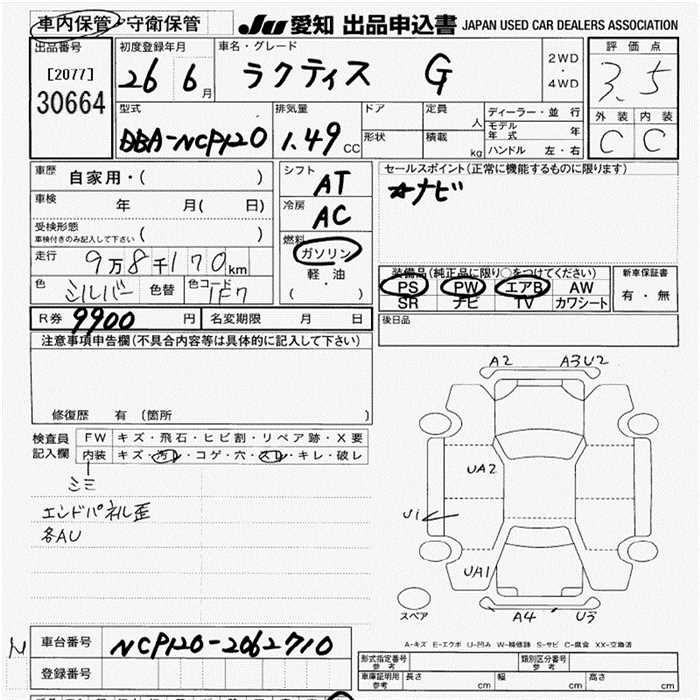 車内保管・守衛保管
JU 愛知 出品申込書 JAPAN USED CAR DEALERS ASSOCIATION
出品番号
[2077]
30664
初度登録年月
26 6 月
車名・グレード
ラクティス G
2WD
・
4WD
評価点
3.5
型式
DBA-NCP120
排気量
1.49 CC
ドア
形状
定員 人
積載 kg
ディーラー・並 行
モデル年式 年
ハンドル 左・右
外装 内装
C C
車歴 自家用・( )
車検 年 月( 日)
受検形態
車検付きのみ記入して下さい ( )
走行 9万8千170km
色 シルバー 色替 色コード 1F7
シフト
AT
冷房
AC
燃料
ガソリン
軽・油
( ・ )
セールスポイント(正常に機能するものに限ります)
☆ナビ
装備品(純正品に限り○をつけてください)
PS PW エアB AW
SR ナビ TV カワシート
新車保証書
有・無
後日品
R券 9900 円 名変期限 月 日
注意事項申告欄(不具合内容等は具体的に記入して下さい)
修復歴 有(箇所 )
検査員
記入欄
FW キズ・飛石・ヒビ割・リペア跡・X要
内装 キズ・汚レ・コゲ・穴・スレ・キレ・破レ
シミ
エンドパネル歪
各AU
A2 A3U2
UA2
U1
UA1
スペア
A4 U3
A-キズ E-エクボ U-凹み W-補修跡 S-サビ C-腐食 XX-交換済
N
車台番号 NCP120-2062710
登録番号
形式指定番号
参考
類別区分番号
参考
車庫証明用
参考
長さ cm 幅 cm 高さ cm